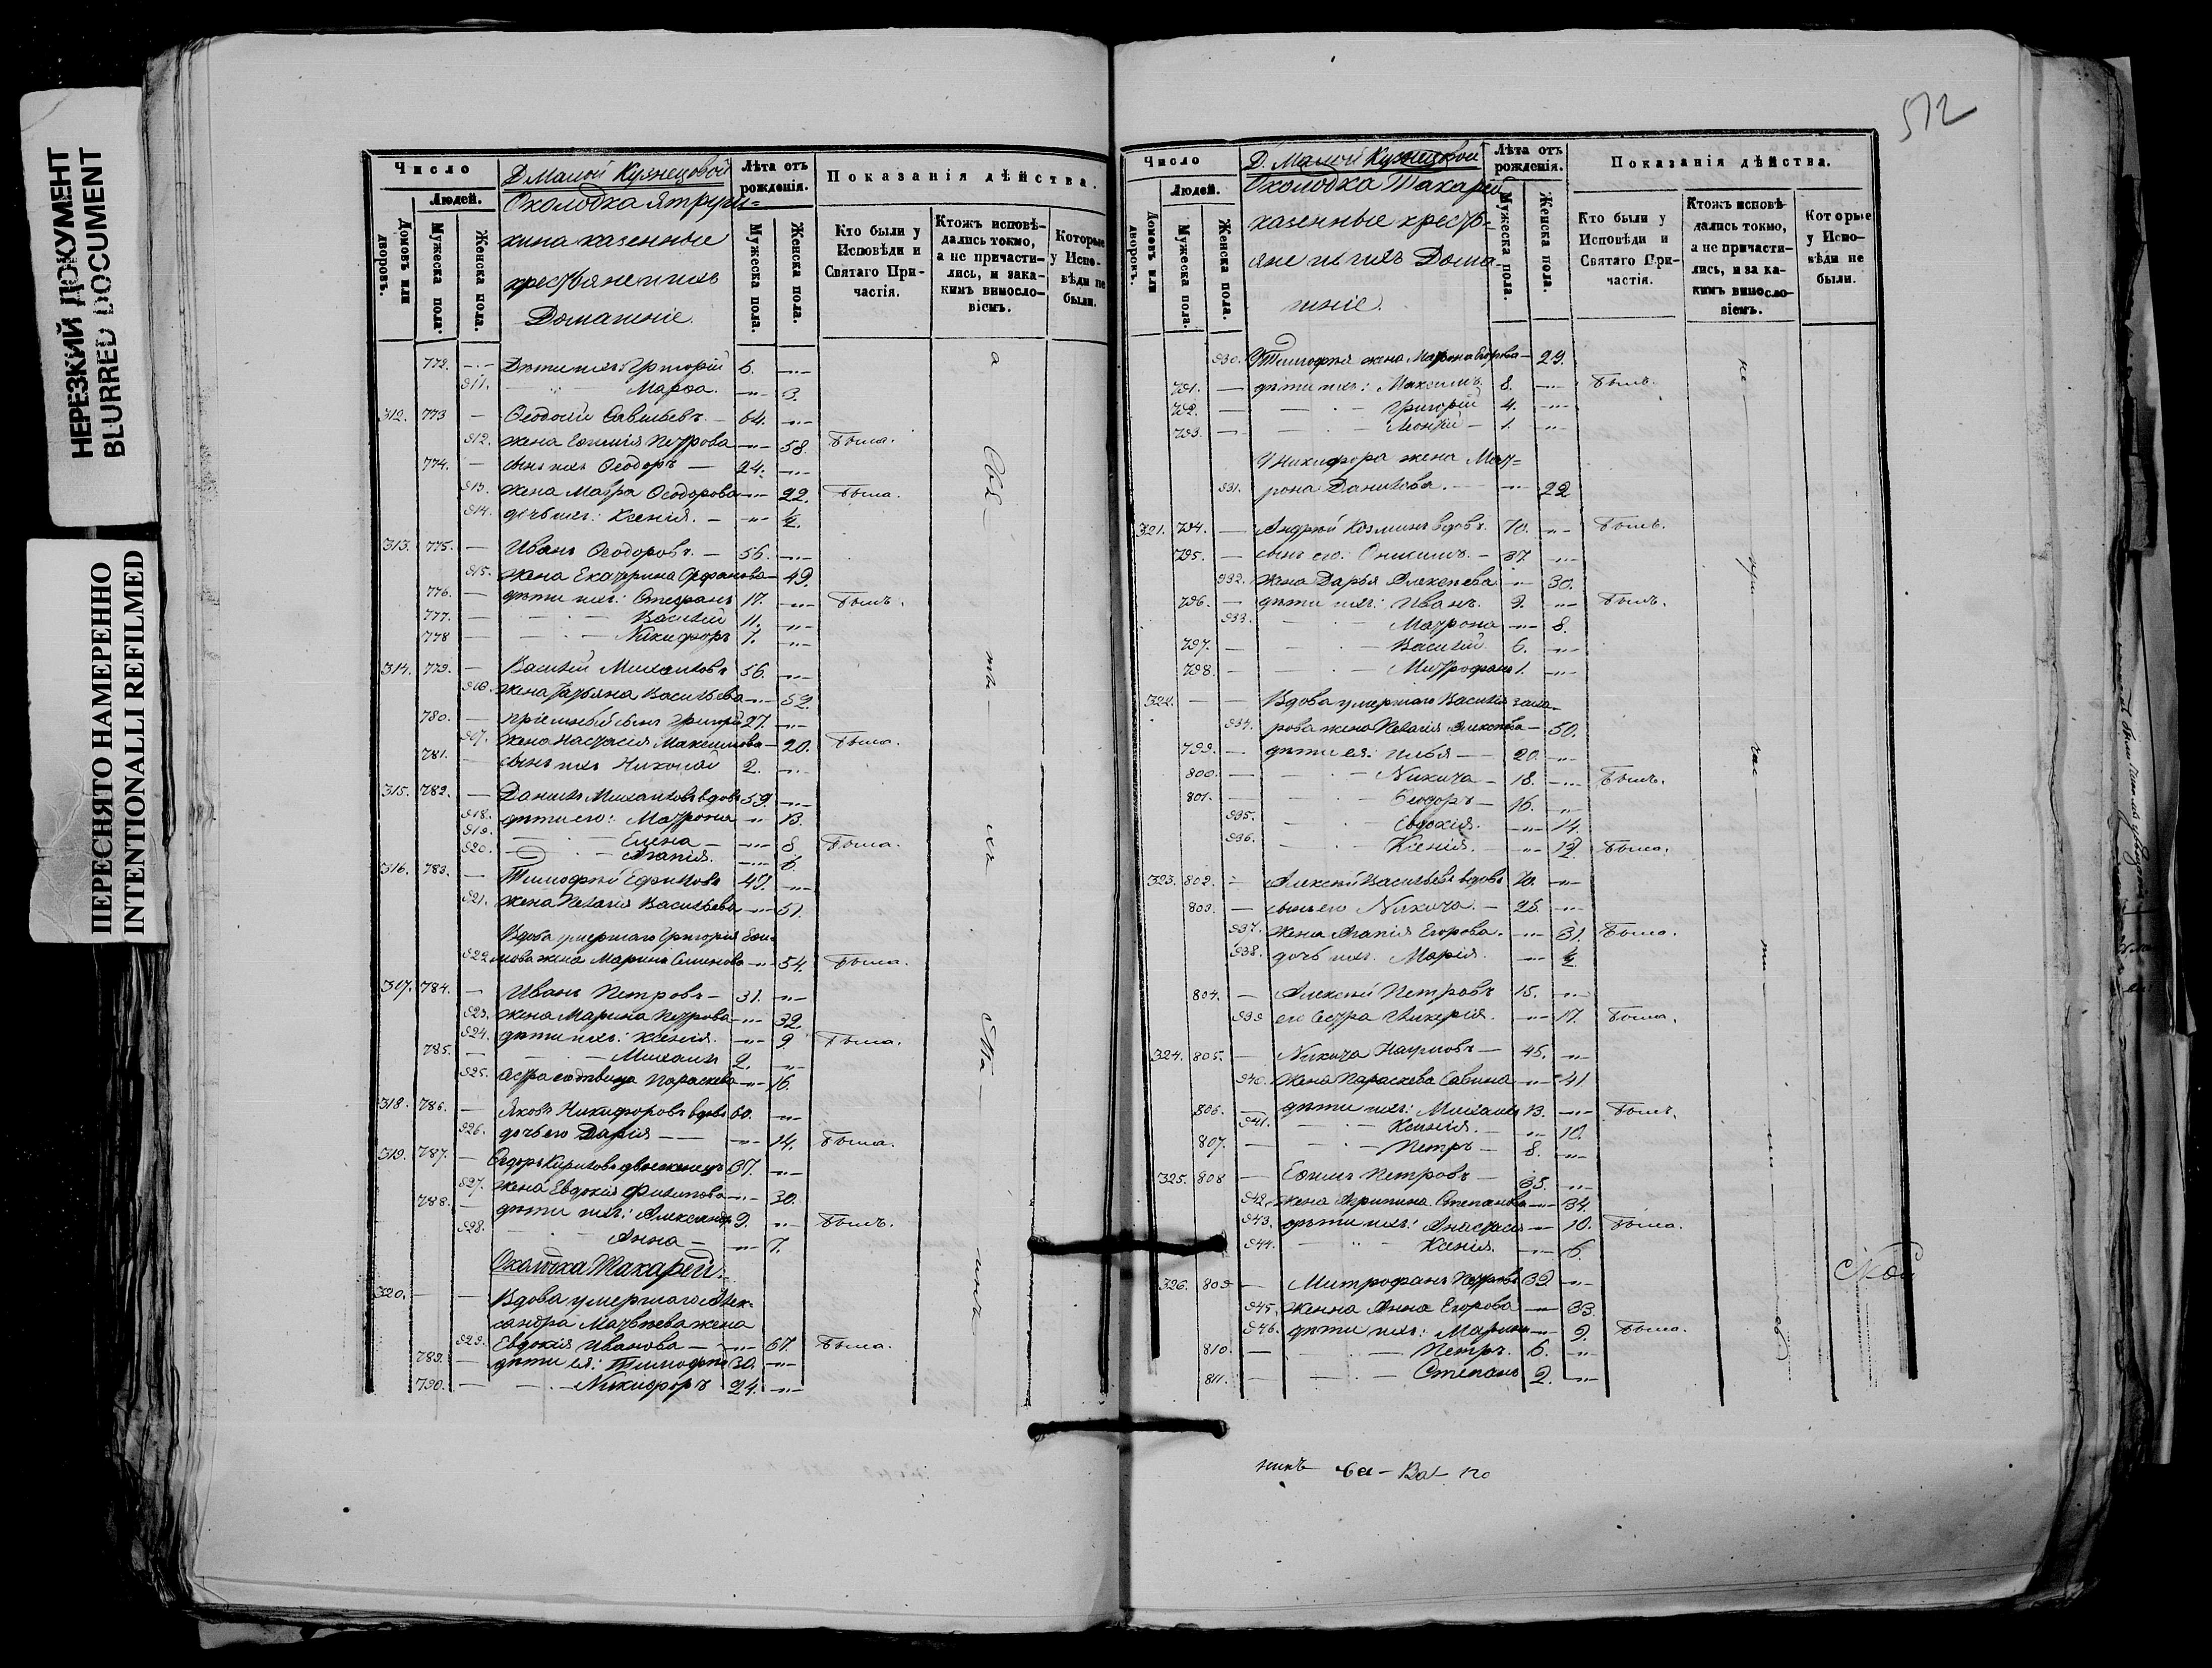 НЕРЕЗКИЙ ДОКУМЕНТ
BLURRED DOCUMENT
ПЕРЕСНЯТО НАМЕРЕННО
INTENTIONALLI REFILMED
Число
Людей.
Домовъ или дворовъ.
Мужеска пола.
Женска пола.
Д. Малой Кузнецовой
Околодка
казенные
крестьяне и ихъ
Домашніе.
Лѣта отъ рожденія.
Мужеска пола.
Женска пола.
Показанія дѣйства.
Кто были у Исповѣди и Святаго Причастія.
Ктожъ исповѣдались токмо, а не причастились, и за какимъ винословіемъ.
Которые у Исповѣди не были.
772. — Дѣти ихъ: Григорій 6.
911. — Марѳа. 3.
312. 773 — Ѳеодосій Савельевъ. 64.
912. жена Евѳимія Петрова 58. Была.
774. — сынъ ихъ Ѳеодоръ — 24.
913. жена Мавра Ѳеодорова 22. Была.
914. дочь ихъ: Ксенія. — ½.
313. 775. — Иванъ Ѳеодоровъ. — 56.
915. жена Екатерина 49.
776. — дѣти ихъ: Стефанъ 17. Былъ.
777. — Василій 11.
778 — Никифоръ 7.
314. 779. — Василій Михайловъ 56.
916. жена Татьяна Васильева 52.
780. — пріемный сынъ Григорій 27.
917. жена Настасія Максимова 20. Была.
781. — сынъ ихъ Николай 2.
315. 782. — Данилъ Михайловъ вдовъ 59.
918. дѣти его: Матрона 13.
919. Елена — 8. Была.
920. Агапія. 6.
316. 783. — Тимофей 47.
921. жена Пелагія Васильева 51.
Вдова умершаго Григорія
922. жена Марина Семенова 54. Была.
317. 784. — Иванъ Петровъ — 31.
923. жена Марина Петрова 32
924. дѣти ихъ: Ксенія. 9. Была.
785. — Михаилъ 2.
925. сестра Параскева 16.
318. 786. — Яковъ Никифоровъ вдовъ 60.
926. дочь его Дарія — 14. Была.
319. 787. — Ѳедоръ двоеженецъ 37.
927. жена Евдокія Филипова 30.
788. — дѣти ихъ: Александръ 9. Былъ.
928. Анна — 7.
Околодка Такарей.
320. — Вдова умершаго Алек-
сандра Матвѣева жена
929. Евдокія Иванова — 67. Была.
789. — дѣти ея: Тимофей 30.
790. — Никифоръ 24.
512
Число
Людей.
Домовъ или дворовъ.
Мужеска пола.
Женска пола.
Д. Малой Кузнецовой
Околодка Такарей
казенные кресть-
яне и ихъ Дома-
шніе.
Лѣта отъ рожденія.
Мужеска пола.
Женска пола.
Показанія дѣйства.
Кто были у Исповѣди и Святаго Причастія.
Ктожъ исповѣдались токмо, а не причастились, и за какимъ винословіемъ.
Которые у Исповѣди не были.
930. У Тимофея жена Матрона Егорова — 29.
791. — дѣти ихъ: Максимъ 8. Былъ.
792. — Григорій 4.
793. — 1.
У Никифора жена Мат=
931. рона Данилова. 22
321. 794. — Андрей Козминъ вдовъ. 70. Былъ.
795. — сынъ его: Онисимъ. — 37.
932. жена Дарья Алексѣева 30.
796. — дѣти ихъ: Иванъ. 9. Былъ.
933. Матрона 8.
797. — Василій. 6.
798. — Митрофанъ 1.
322. — Вдова умершаго Василія Заха-
934. рова жена Пелагія 50.
799. — дѣти ея: Илья — 20.
800. — Никита — 18. Былъ.
801. — Ѳеодоръ — 16.
935. Евдокія. 14.
936. Ксенія. 12. Была.
323. 802. — Алексѣй Васильевъ вдовъ 70.
803. — сынъ его Никита. — 25.
937. жена Агапія Егорова. 31. Была.
938. дочь ихъ. Марія. ½.
804. — Алексѣй Петровъ 15.
939 его сестра Гликерія. 17. Была.
324. 805. — Никита Наумовъ — 45.
940. жена Параскева Савина 41
806. — дѣти ихъ: Михаилъ 13. Былъ.
941. Ксенія. — 10.
807. — Петръ — 8.
325. 808 — Евѳимъ Петровъ — 35.
942. жена Агрипина Степанова 34.
943. дѣти ихъ: Анастасія 10. Была.
944. Ксенія. 6.
326. 809 — Митрофанъ Петровъ 32.
945. женна Анна Егорова 33.
946. дѣти ихъ: Марина 9. Была.
810. — Петръ. 6.
811. — Степанъ 2.